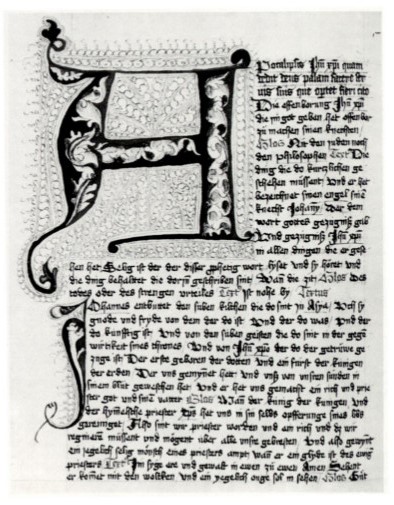 Apocalipsis Jhū xpi quam
dedit deus palam facere ser
uis suis que oportet fieri cito
Die offenbarung Jhū xpi
die ym got geben het offenbar
zů machen sinen knechten
Glos Nit den juden noch
den philosophen Text Die
ding die do kurczlichen ge
schehen müssent Vnd er het
bezeichnet sinen engel sinē
knecht Johañ Der dem
wort gottes gezugniß gab
Vnd gezugniß Jhū xpi
in allen dingen die er gese
hen het Selig ist der der diser ppheты wort lyset vnd sy höret vnd
die ding behaltet die dorjn geschriben sint Wañ die zit Glos des
todes oder des strengen vrteiles Text ist nohe by Textus
Johannes entbütet den suben kilchen die do sint zu Asya Vch sy
gnode vnd fryde von dem der do ist Vnd der do was Vnd der
do kunfftig ist Vnd von den suben geisten die do sint in der gege
wirtikeit sines thrones Vnd von Jhū xpo der do der getruwe ge
zuge ist Der erste geboren der dotten vnd ein furst der kunige
der erden Der vns gemynet het vnd vnß von vnsern sunden in
sinem blůt geweschen het Vnd er het vns gemacht ein rich vnd prie
ster got vnd sinē vatter Glos Wañ der kunig der kunigen vnd
der hymelsche priester xps het vns in im selbs opfferunge sines
gereiniget Also sint wir priester worden vnd ein rich vnd dz wir
regnieren müssent vnd mögent über alle vnsre gebresten Vnd also gewynt
ein jegelich selig mönsch eines priesters ampt wañ er ein glyde ist des ewigē
priesters Text Im syge ere vnd gewalt in ewen zu ewen Amen Sehent
er komet mit den wolcken vnd ein yegelich ouge sol in sehen Glos